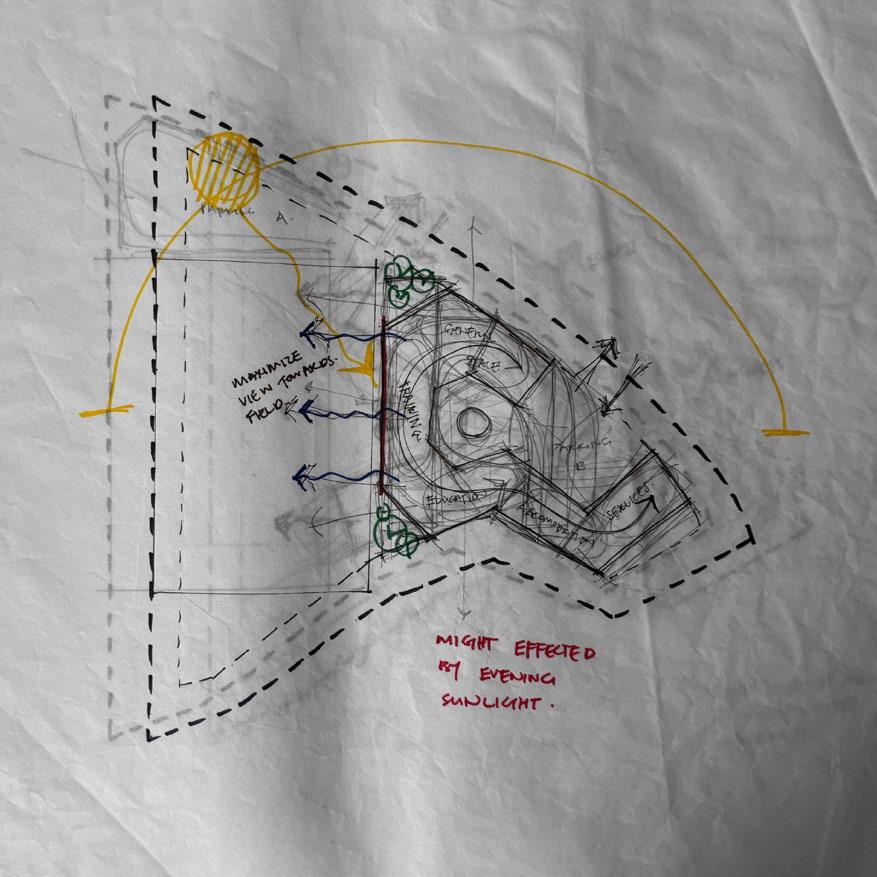 PARKING A.
GENERAL
SPACE
MAXIMIZE
VIEW TOWARDS.
FIELD.
TRAINING
PARKING
B
EDUCATION
ACCOMODATION
SERVICES
MIGHT EFFECTED
BY EVENING
SUNLIGHT.